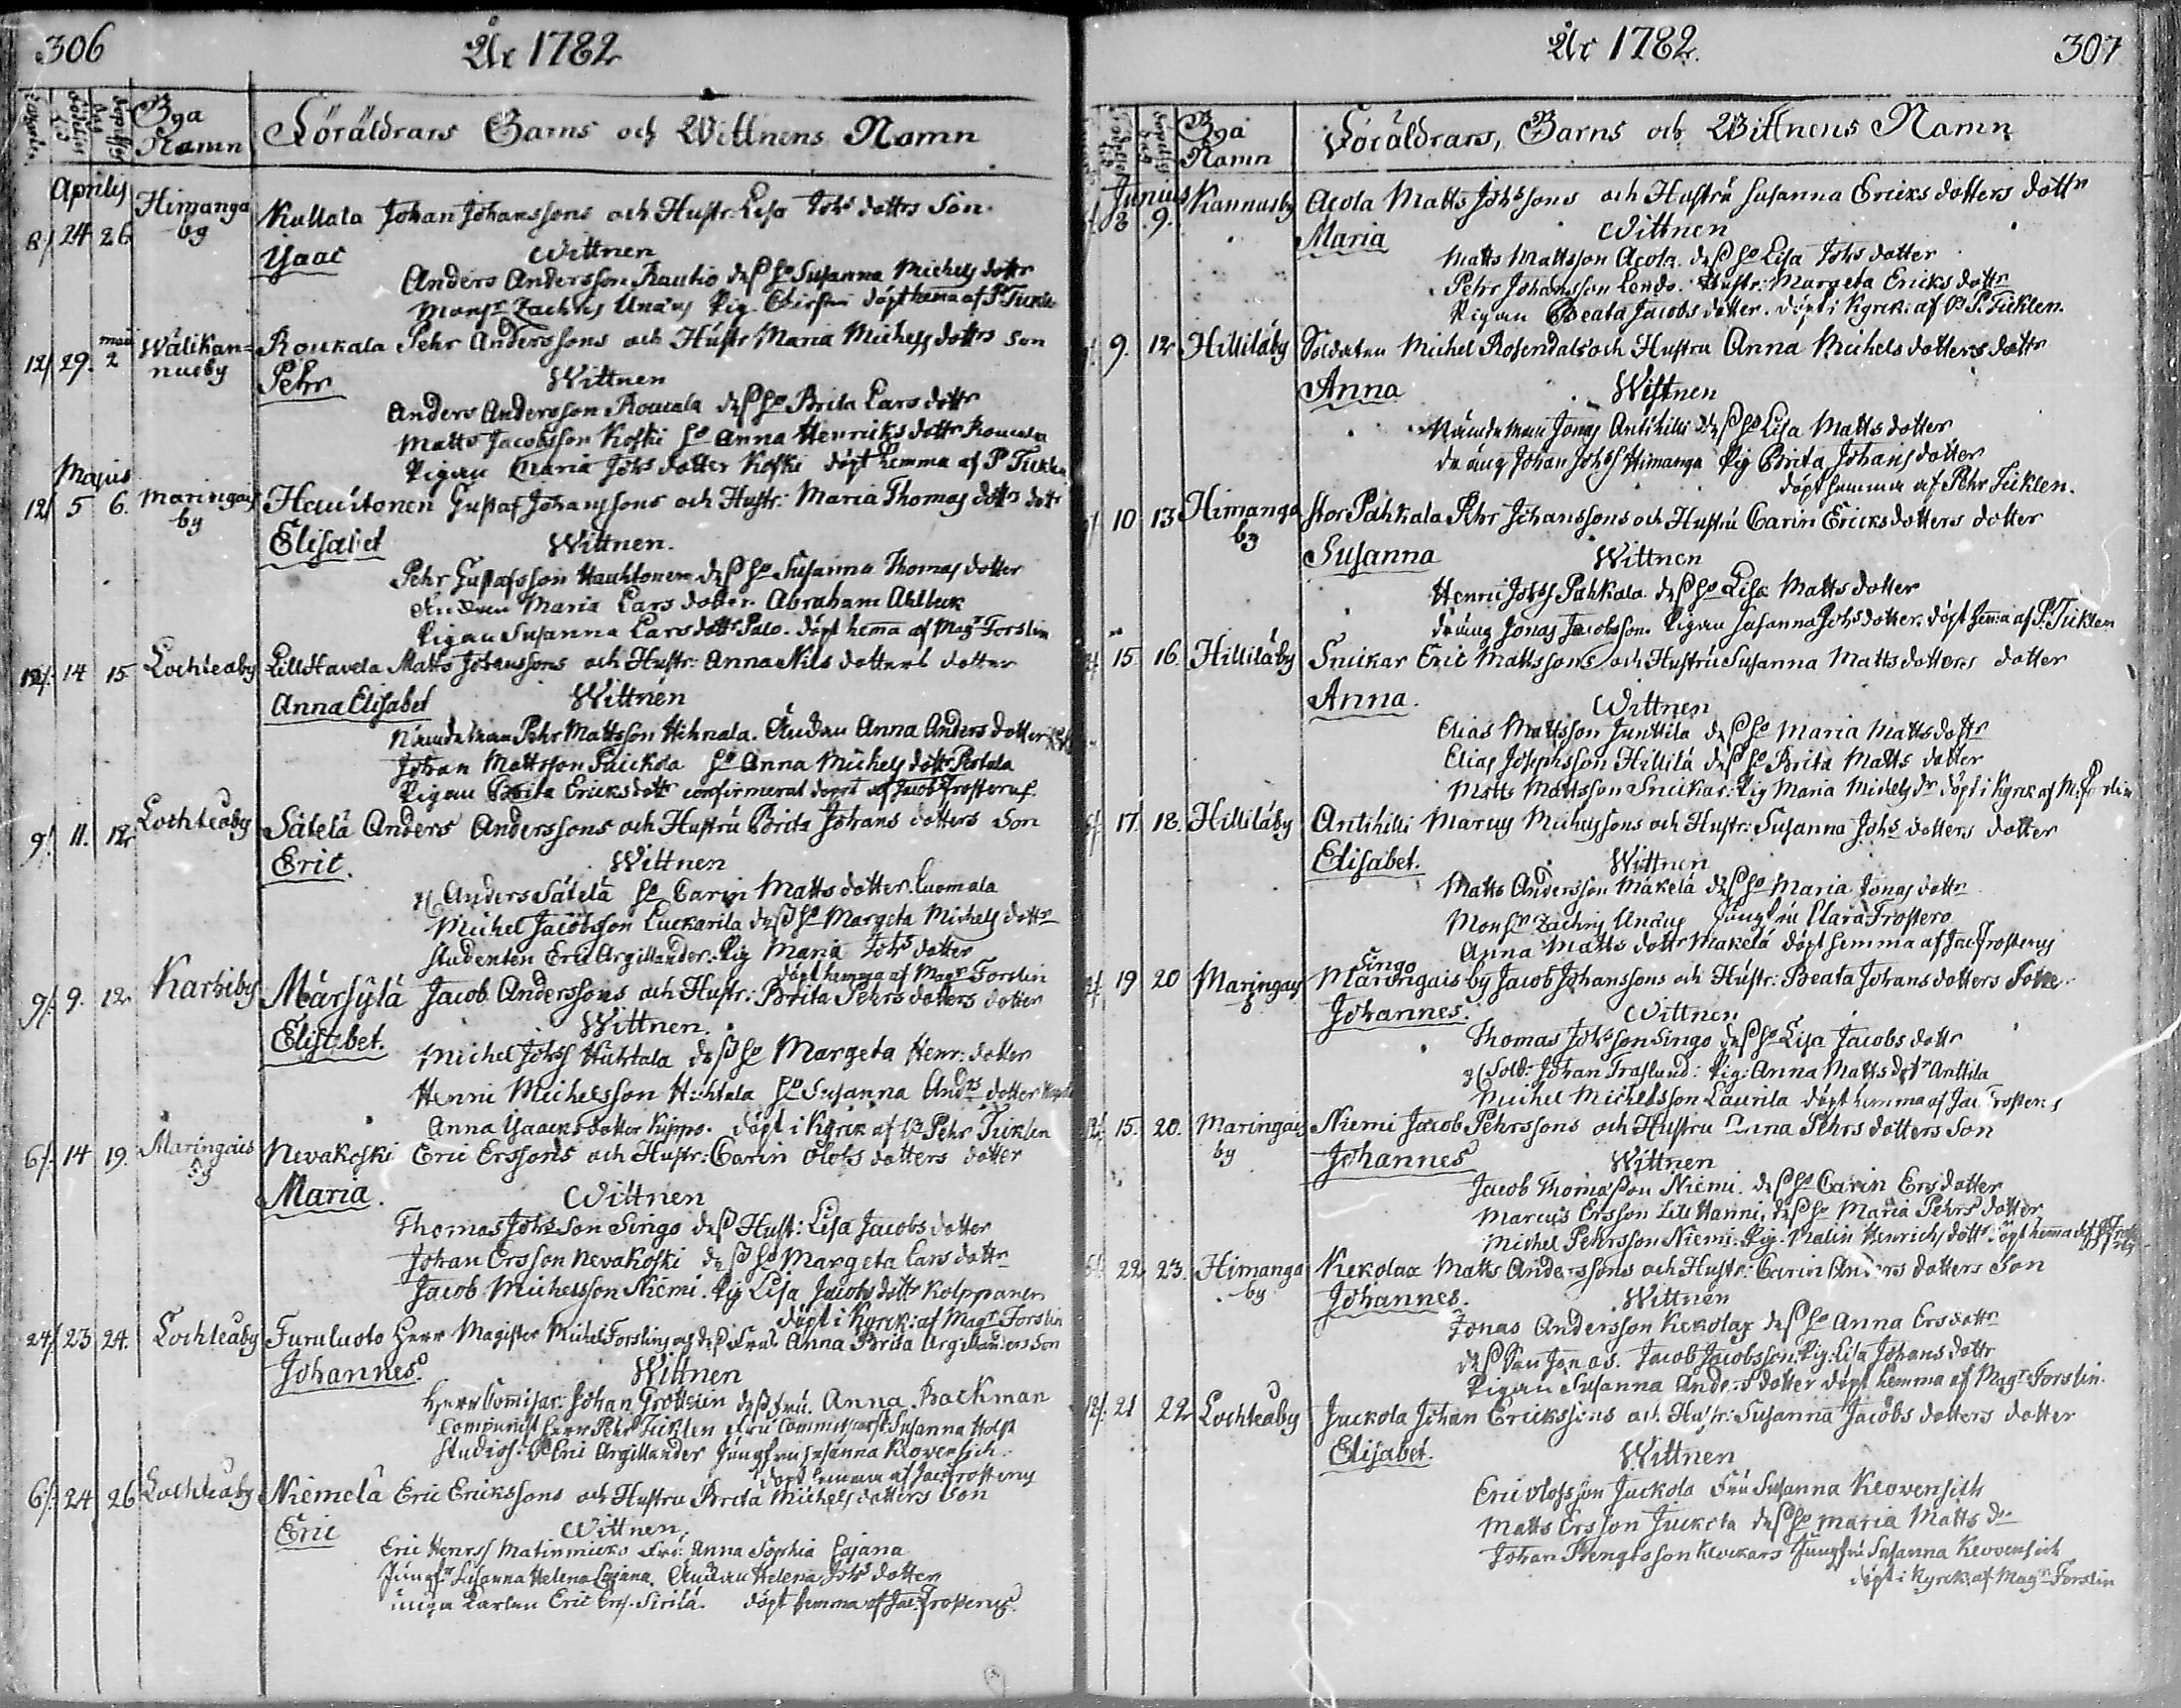 306
År 1782
Bya Namn
Föräldrars Barns och Wittnens Namn
Aprilis
8/. 24 26 Himanga by Kullala Johan Johanssons och Hustr: Lisa Johs dotters Son
Ysaac
Wittnen
Anders Andersson Rautio dess ho Susanna Michels dottr
Monsr Zachris Unæus Pig. döpt hema af P Ticklen
12/. 29. maii 2 Wälikan=
nusby
Roukala Pehr Anderssons och Hustr Maria Michels dottrs Son
Pehr
Wittnen
Anders Andersson Roucala dess ho Brita Lars dottr
Matts Jacobsson Koski ho Anna Henricks dottr Roucala
Pigan Maria Johs dotter Koski döpt hemma af P Ticklen
Majus
12/ 5 6. Maringais by Hauitonen Gustaf Johanssons och Hustr: Maria Thomas dottrs dottr
Elisabet
Wittnen.
Pehr Gustafsson Hauhtonen dess ho Susanna Thomas dotter
Enckan Maria Lars dotter. Abraham Ahlbeck
Pigan Susanna Lars dottr Palo. döpt hema af Magr Forslin
12/. 14 15 Lochteaby Lill Havela Matts Johanssons och Hustr: Anna Nils dotters dotter
Anna Elisabet
Wittnen
Nämdeman Pehr Mattsson Hihnala. Änckan Anna Anders dotter
Johan Mattsson Paickola ho Anna Michels dottr Pertula
Pigan Brita Ericks dottr confirmerat dopet af Jacob Frosterus.
9/. 11. 12. Lochteaby Sätelä Anders Anderssons och Hustru Brita Johans dotters Son
Eric.
Wittnen
Anders Sätelä ho Carin Matts dotter. Luomala
Michel Jacobsson Luckarila dess ho Margeta Michels dottr
Studenten Eric Argillander. Pig Maria Johs dotter
döpt hemma af Magr Forslin
9/. 9. 12 Karhiby Märsylä Jacob Anderssons och Hustr: Brita Pehrs dotters dotter
Elisabet.
Wittnen.
Michel Johss Huhtala dess ho Margeta Henr: dotter
Henric Michelsson Huhtala ho Susanna Andrs dotter
Anna Ysaacks dotter Kippo. döpt i Kyrck af Pehr Ticklen
6/. 14 19. Maringais by Nevakoski Eric Erssons och Hustr: Carin Olofs dotters dotter
Maria.
Wittnen
Thomas Johsson Singo dess Hust: Lisa Jacobs dotter
Johan Ersson Nevakoski dess ho Margeta Lars dottr
Jacob Michelsson Niemi. Pig Lisa Jacobs dottr Kolppanen
döpt i Kyrck: af Magr Forslin
24/. 23 24. Lochteaby Furuluoto Herr Magister Michel Forslins och dess Fru Anna Brita Argillanders Son
Johannes.
Wittnen
Herr Commisar: Johan Grottelin dess fru. Anna Backman
Compunist Herr Pehr Ticklen Fru Commissarsk: Susanna Holst
Studios. Eric Argillander Jungfru Susanna Klovensich
döpt hemma af Jac Frosterus
6/. 24 26 Lochteaby Niemelä Eric Erickssons och Hustru Brita Michels dotters Son
Eric
Wittnen
Eric Henrss Matinmicko Fru: Anna Sophia Cajana
Jungfr Susanna Helena Cajana. Änckan Helena Johs dotter
unga Karlen Eric Erss. Sirilä. döpt hemma af Jac. Frosterus.
År 1782.
307
Bya Namn
Föräldrars, Barns och Wittnens Namn
Junius
8 9. Kannusby Acola Matts Johssons och Hustru Susanna Ericks dotters dottr
Maria
Wittnen
Matts Mattsson Acola. dess ho Lisa Johs dotter
Pehr Johansson Lendo. Hustr: Margeta Ericks dottr
Pigan Beata Jacobs dotter. döpt i Kyrck: af P. Ticklen.
9. 12 Hilliläby Soldaten Michel Rosendals och Hustru Anna Michels dotters dottr
Anna
Wittnen
Nämdeman Jonas Antihilli dess ho Lisa Matts dotter
dräng Johan Johss Himanga Pig Brita Johans dotter
döpt hemma af Pehr Ticklen.
10 13 Himanga by Stor Pahkala Pehr Johanssons och Hustru Carin Ericks dotters dotter
Susanna
Wittnen
Henric Johss Pahkala dess ho Lisa Matts dotter
dräng Jonas Jacobsson. Pigan Susanna Johs dotter. döpt hema af P. Ticklen
15. 16. Hilliläby Snikar Eric Mattssons och Hustru Susanna Matts dotters dotter
Anna.
Wittnen
Elias Mattsson Junttila dess ho Maria Matts dottr
Elias Josephsson Hillilä dess ho Brita Matts dotter
Matts Mattsson Snickar: Pig Maria Michels dr döpt i Kyrck af M. Forslin
17. 18. Hilliläby Antihilli Marcus Michelssons och Hustr: Susanna Johs dotters dotter
Elisabet.
Wittnen
Matts Andersson Mäkelä dess ho Maria Jonas dottr
Monsr Zachris Unæus Jungfru Clara Frosterus
Anna Matts dottr Mäkelä döpt hemma af Jac Frosterus
Singo
19 20 Maringais b Maringais by Jacob Johanssons och Hustr: Beata Johans dotters Son
Johannes.
Wittnen
Thomas Johsson Singo dess ho Lisa Jacobs dottr
Sold: Johan Fraslund: Pig: Anna Matts dotr Anttila
Michel Michelsson Laurila döpt hemma af Jac Frosterus
15. 20. Maringais by Niemi Jacob Pehrssons och Hustru Anna Pehrs dotters Son
Johannes
Wittnen
Jacob Thomasson Niemi. dess ho Carin Ers dotter
Marcus Ersson Lill Hanni, dess ho Maria Pehrs dotter
Michel Pehrsson Niemi. Pig. Malin Henrichs dottr. döpt hemma af
22 23. Himanga by Kekolax Matts Anderssons och Hustr: Carin Anders dotters Son
Johannes.
Wittnen
Jonas Andersson Kekolax dess ho Anna Ers dottr
dess Son Jonas. Jacob Jacobsson, Pig: Lisa Johans dottr
Pigan Susanna Anders dotter döpt hemma af Magr Forslin.
21 22 Lochteaby Juckola Johan Erickssons och Hustr: Susanna Jacobs dotters dotter
Elisabet.
Wittnen
Eric Olofsson Juckola Fru Susanna Klovensich
Matts Ersson Juckola dess ho Maria Matts dr
Johan Bengtsson Klockars Jungfru Susanna Klovensich
döpt i Kyrck af Magr Forslin